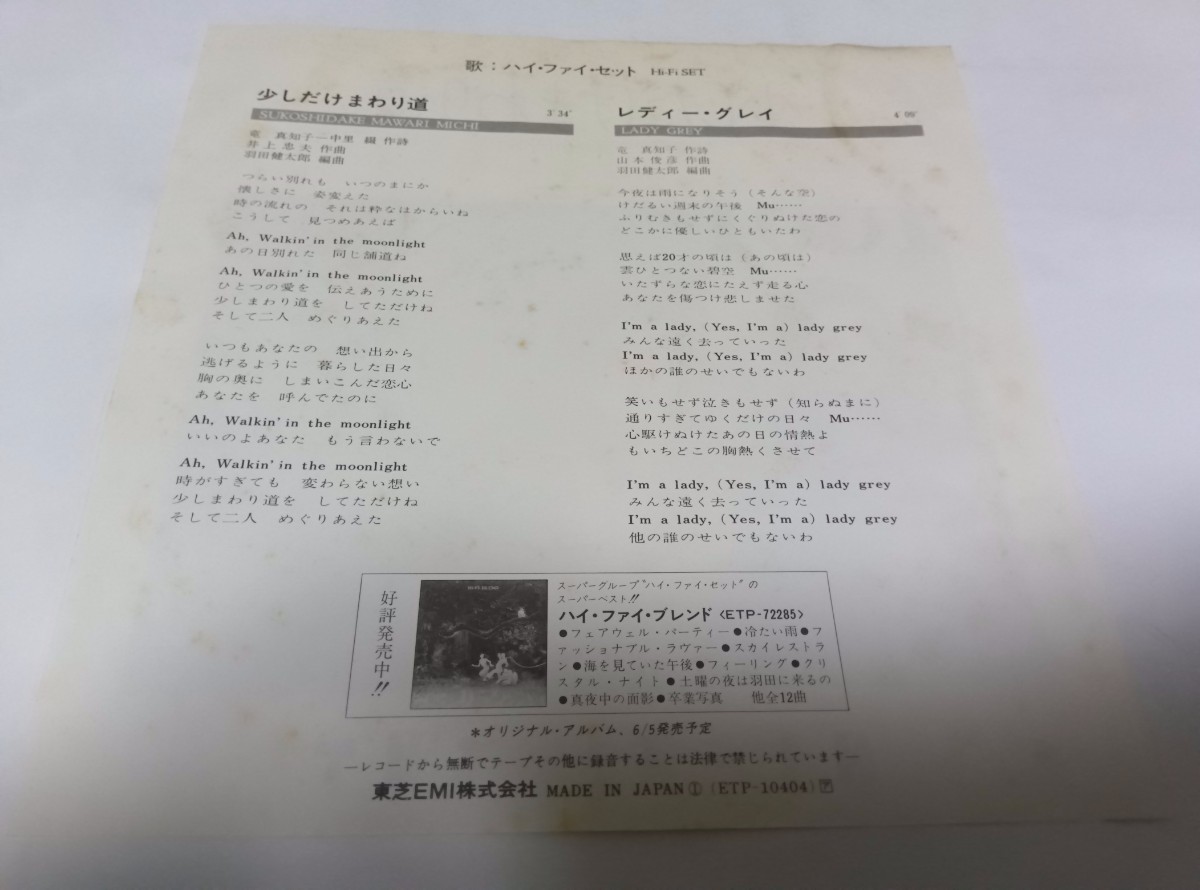 歌：ハイ・ファイ・セット Hi-Fi SET
少しだけまわり道 3'34"
SUKOSHIDAKE MAWARI MICHI
竜 真知子―中里 綴 作詩
井上忠夫 作曲
羽田健太郎 編曲
つらい別れも いつのまにか
懐しさに 姿変えた
時の流れの それは粋なはからいね
こうして 見つめあえば
Ah, Walkin' in the moonlight
あの日別れた 同じ舗道ね
Ah, Walkin' in the moonlight
ひとつの愛を 伝えあうために
少しまわり道を してただけね
そして二人 めぐりあえた
いつもあなたの 想い出から
逃げるように 暮らした日々
胸の奥に しまいこんだ恋心
あなたを 呼んでたのに
Ah, Walkin' in the moonlight
いいのよあなた もう言わないで
Ah, Walkin' in the moonlight
時がすぎても 変わらない想い
少しまわり道を してただけね
そして二人 めぐりあえた
レディー・グレイ
LADY GREY
竜 真知子 作詩
山本俊彦 作曲
羽田健太郎 編曲
今夜は雨になりそう（そんな空）
けだるい週末の午後 Mu……
ふりむきもせずにくぐりぬけた恋の
どこかに優しいひともいたわ
思えば20才の頃は（あの頃は）
雲ひとつない碧空 Mu……
いたずらな恋にたえず走る心
あなたを傷つけ悲しませた
I'm a lady, (Yes, I'm a) lady grey
みんな遠く去っていった
I'm a lady, (Yes, I'm a) lady grey
ほかの誰のせいでもないわ
笑いもせず泣きもせず（知らぬまに）
通りすぎてゆくだけの日々 Mu……
心駆けぬけたあの日の情熱よ
もいちどこの胸熱くさせて
I'm a lady, (Yes, I'm a) lady grey
みんな遠く去っていった
I'm a lady, (Yes, I'm a) lady grey
他の誰のせいでもないわ
好評発売中!!
スーパーグループ"ハイ・ファイ・セット"の
スーパーベスト!!
ハイ・ファイ・ブレンド〈ETP-72285〉
●フェアウェル・パーティー●冷たい雨●フ
ァッショナブル・ラヴァー●スカイレストラ
ン●海を見ていた午後●フィーリング●クリ
スタル・ナイト●土曜の夜は羽田に来るの
●真夜中の面影●卒業写真 他全12曲
＊オリジナル・アルバム、6/5発売予定
―レコードから無断でテープその他に録音することは法律で禁じられています―
東芝EMI株式会社 MADE IN JAPAN Ⓘ (ETP-10404)